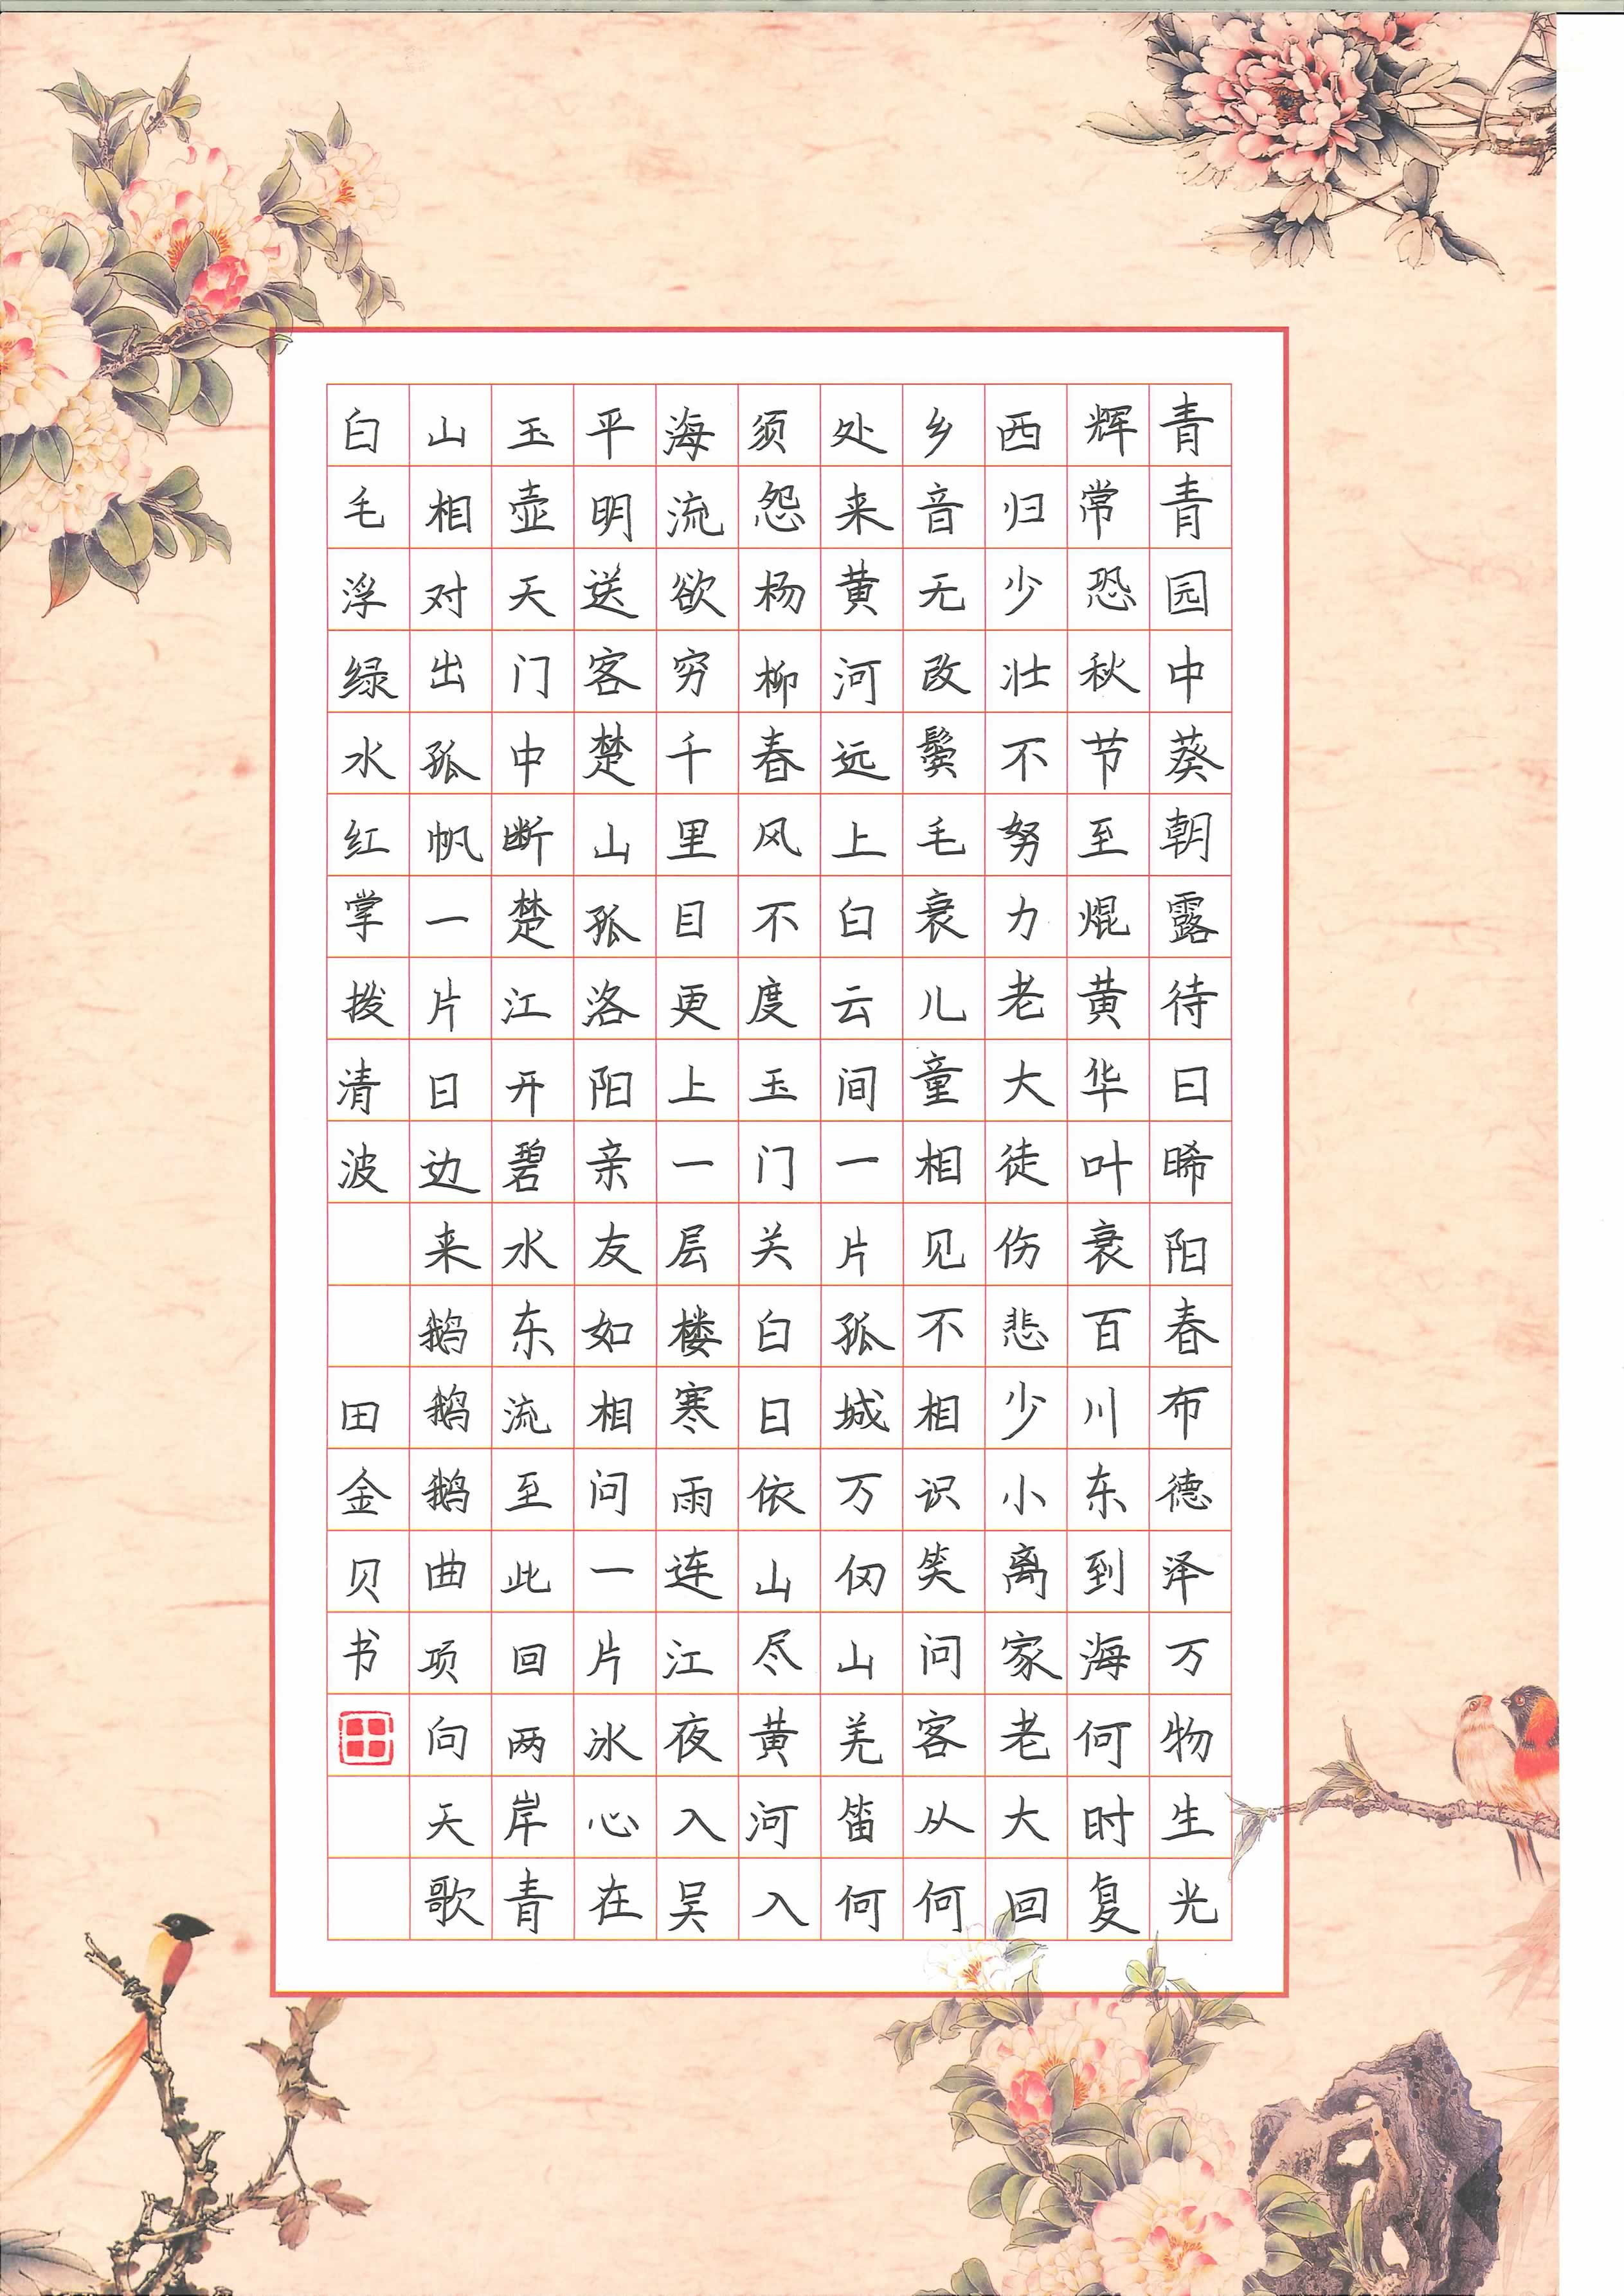 青青园中葵朝露待日晞阳春布德泽万物生光
辉常恐秋节至焜黄华叶衰百川东到海何时复
西归少壮不努力老大徒伤悲少小离家老大回
乡音无改鬓毛衰儿童相见不相识笑问客从何
处来黄河远上白云间一片孤城万仞山羌笛何
须怨杨柳春风不度玉门关白日依山尽黄河入
海流欲穷千里目更上一层楼寒雨连江夜入吴
平明送客楚山孤洛阳亲友如相问一片冰心在
玉壶天门中断楚江开碧水东流至此回两岸青
山相对出孤帆一片日边来鹅鹅鹅曲项向天歌
白毛浮绿水红掌拨清波 田金贝书